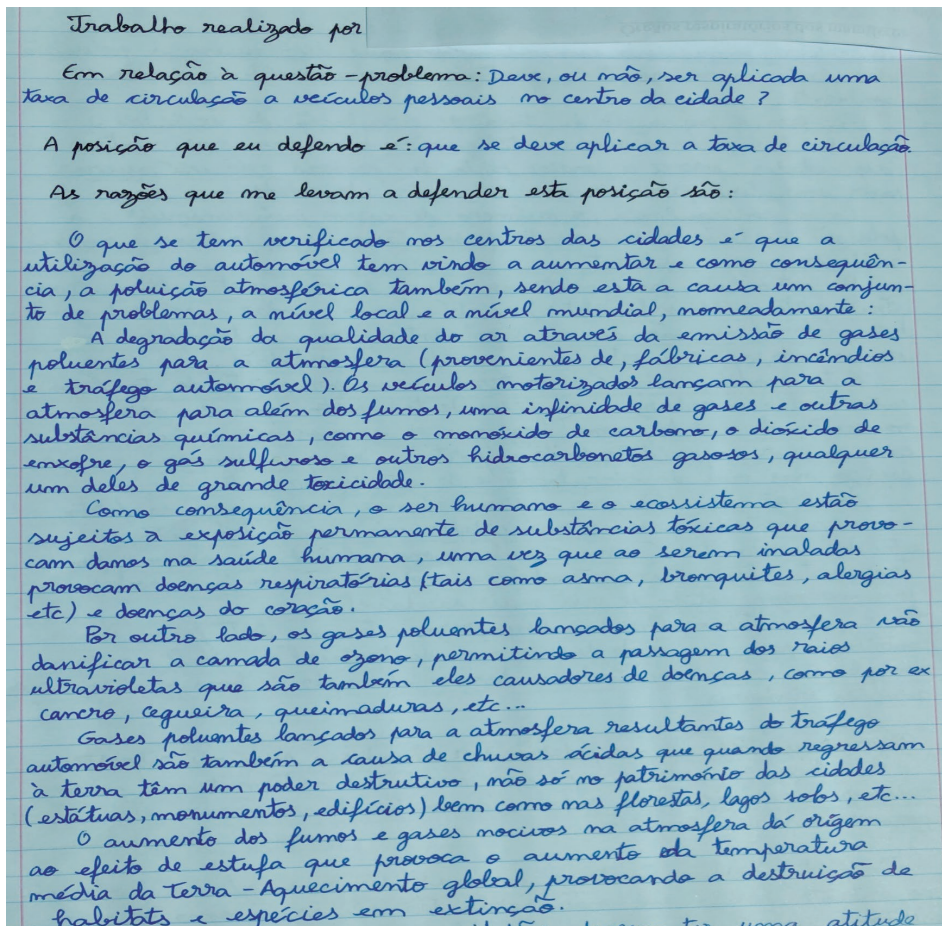 Trabalho realizado por
Em relação à questão-problema: Deve, ou não, ser aplicada uma
taxa de circulação a veículos pessoais no centro da cidade?
A posição que eu defendo é: que se deve aplicar a taxa de circulação.
As razões que me levam a defender esta posição são:
O que se tem verificado nos centros das cidades é que a
utilização do automóvel tem vindo a aumentar e como consequên-
cia, a poluição atmosférica também, sendo esta a causa um conjun-
to de problemas, a nível local e a nível mundial, nomeadamente:
A degradação da qualidade do ar através da emissão de gases
poluentes para a atmosfera (provenientes de, fábricas, incêndios
e tráfego automóvel). Os veículos motorizados lançam para a
atmosfera para além dos fumos, uma infinidade de gases e outras
substâncias químicas, como o monóxido de carbono, o dióxido de
enxofre, o gás sulfuroso e outros hidrocarbonetos gasosos, qualquer
um deles de grande toxicidade.
Como consequência, o ser humano e o ecossistema estão
sujeitos à exposição permanente de substâncias tóxicas que provo-
cam danos na saúde humana, uma vez que ao serem inaladas
provocam doenças respiratórias (tais como asma, bronquites, alergias
etc) e doenças do coração.
Por outro lado, os gases poluentes lançados para a atmosfera vão
danificar a camada de ozono, permitindo a passagem dos raios
ultravioletas que são também eles causadores de doenças, como por ex
cancro, cegueira, queimaduras, etc...
Gases poluentes lançados para a atmosfera resultantes do tráfego
automóvel são também a causa de chuvas ácidas que quando regressam
à terra têm um poder destrutivo, não só no património das cidades
(estátuas, monumentos, edifícios) bem como nas florestas, lagos solos, etc...
O aumento dos fumos e gases nocivos na atmosfera dá origem
ao efeito de estufa que provoca o aumento da temperatura
média da Terra - Aquecimento global, provocando a destruição de
habitats e espécies em extinção.
uma atitude